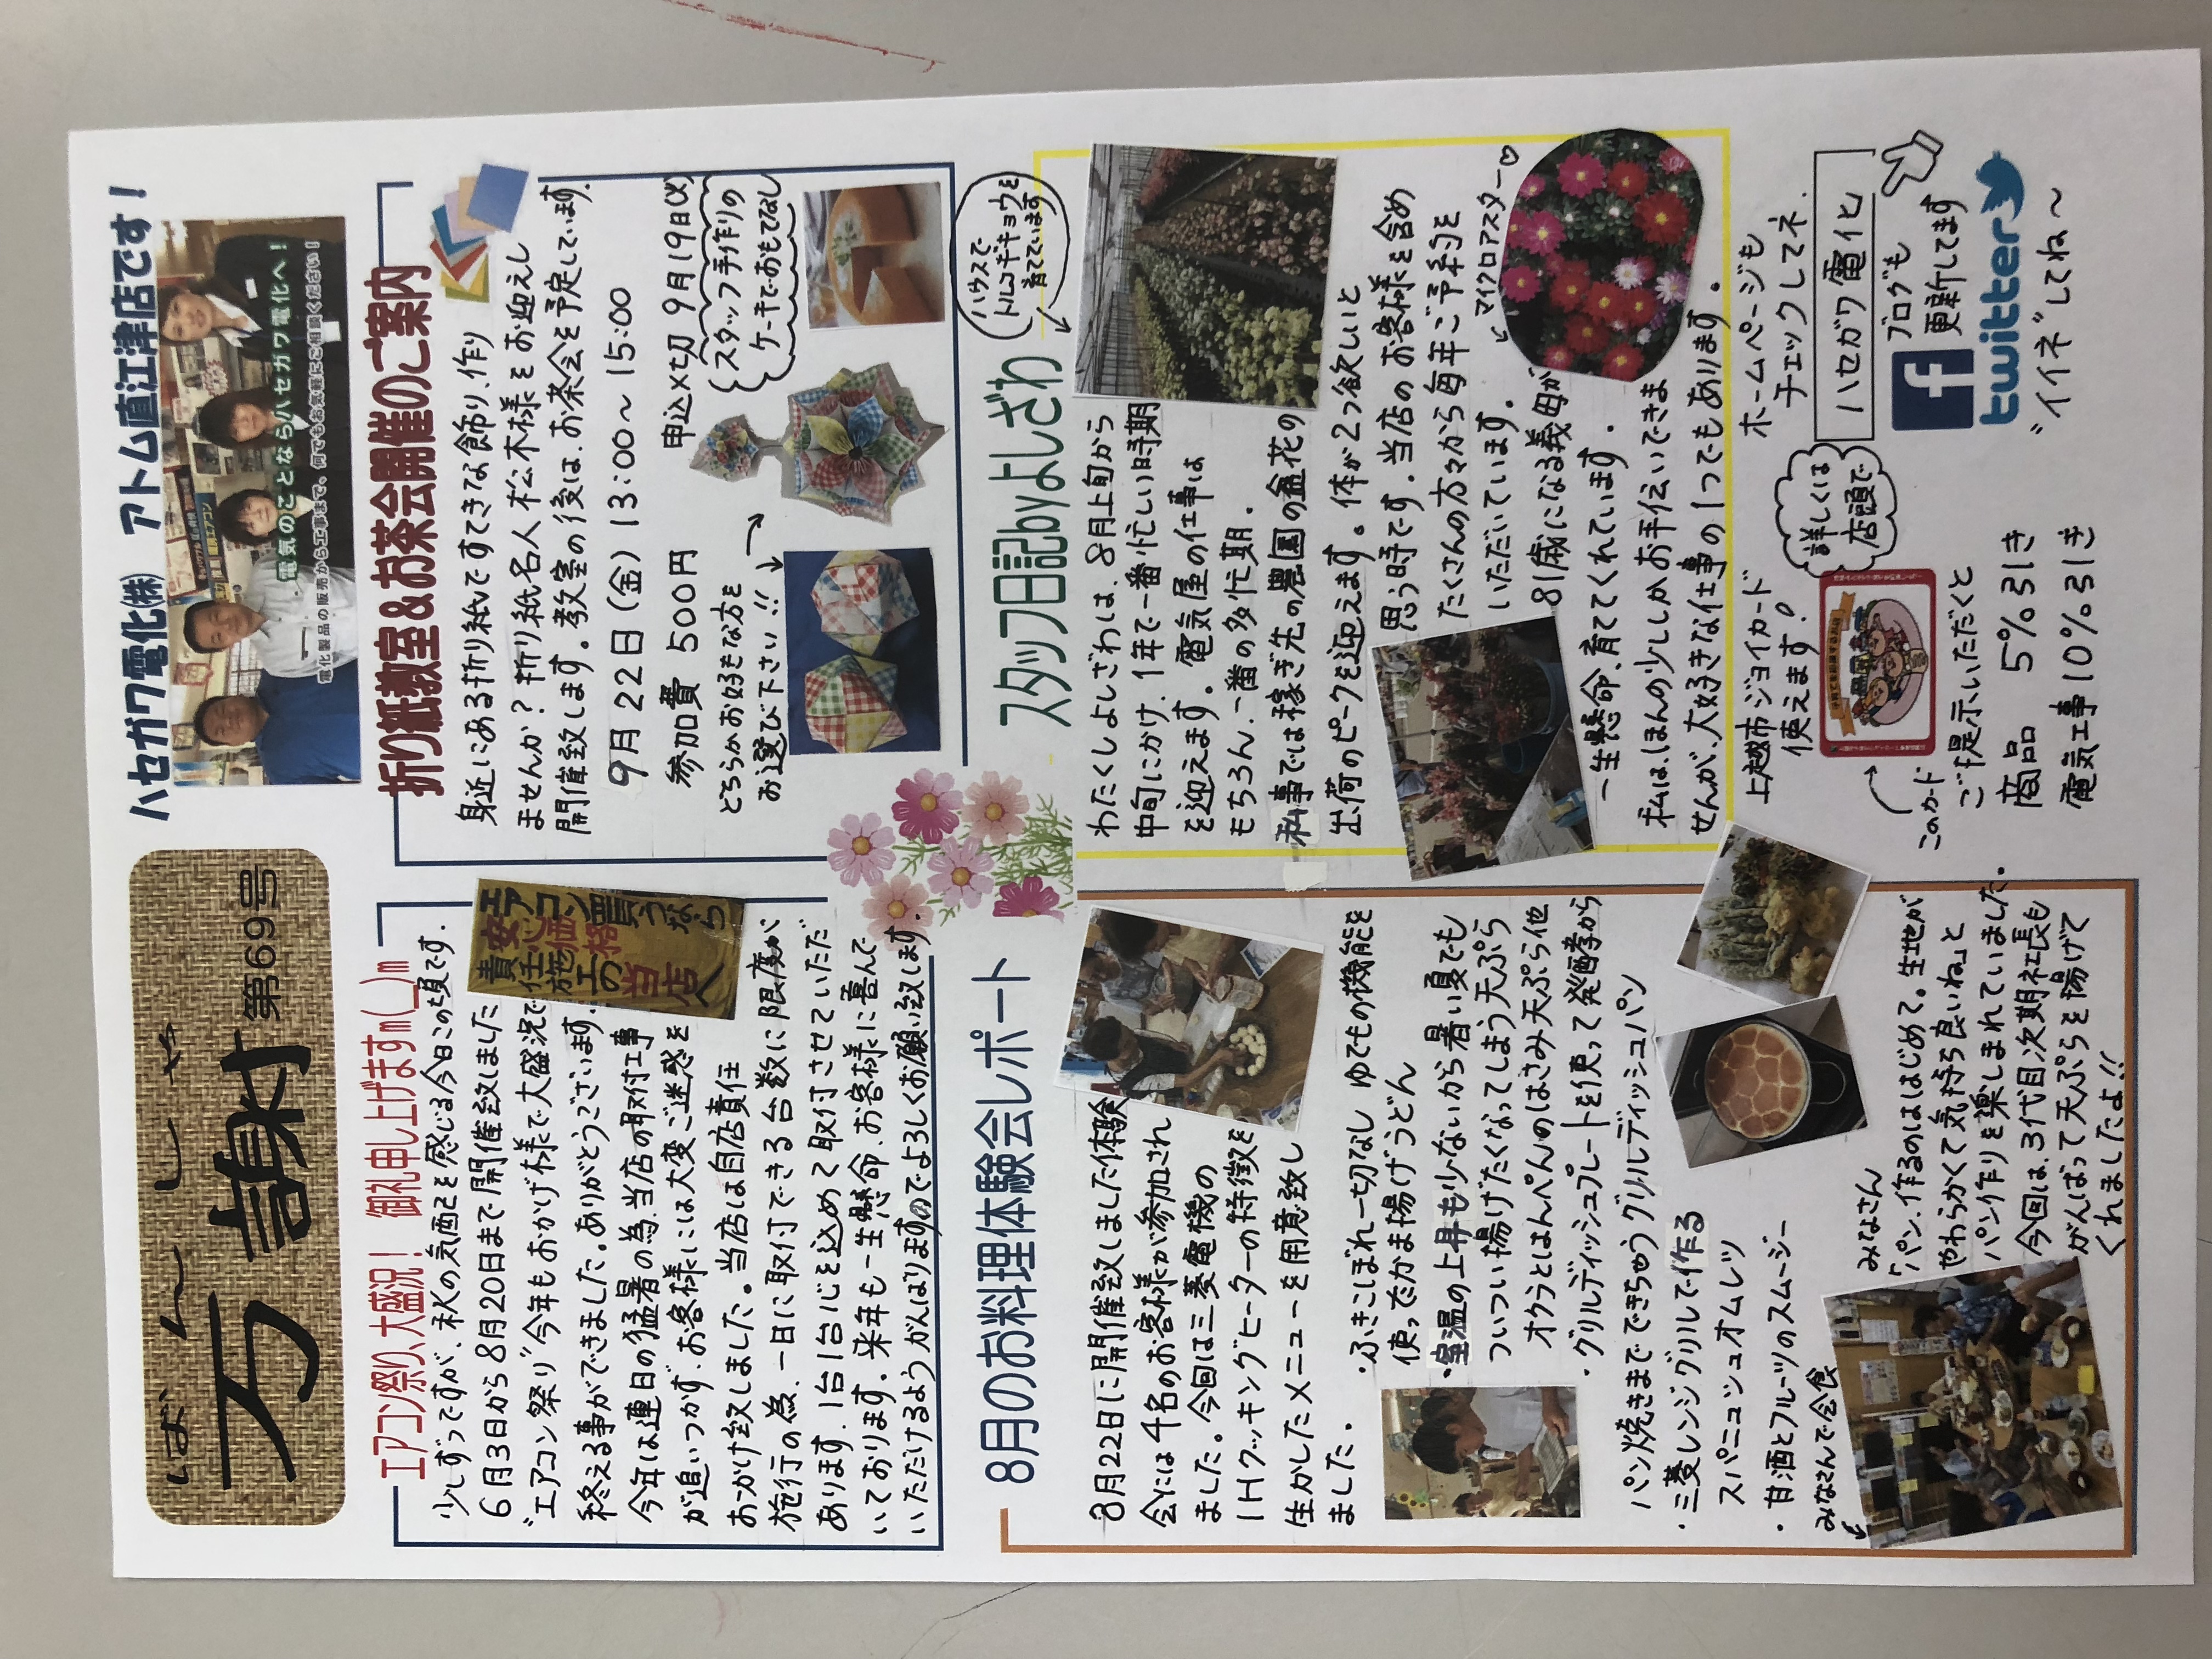 ばんしゃ
万謝 第69号
ハセガワ電化㈱ アトム直江津店です！
電気のことならハセガワ電化へ！
電化製品の販売から工事まで、何でもお気軽にご相談ください！
エアコン祭り、大盛況！ 御礼申し上げますm(_)m
少しずつですが、秋の気配を感じる今日この頃です。
6月3日から8月20日まで開催致しました
"エアコン祭り"今年もおかげ様で大盛況で
終える事ができました。ありがとうございます。
今年は連日の猛暑の為、当店の取付工事
が追いつかず、お客様には大変ご迷惑を
おかけ致しました。当店は自店責任
施行の為、一日に取付できる台数に限度が
あります。1台1台心を込めて取付させていただ
いております。来年も一生懸命、お客様に喜んで
いただけるようがんばりますのでよろしくお願い致します。
エアコン買うなら
安心価格の当店へ
責任施工
折り紙教室＆お茶会開催のご案内
身近にある折り紙ですてきな飾り、作り
ませんか？折り紙名人松木様をお迎えし
開催致します。教室の後は、お茶会を予定しています。
9月22日(金) 13:00～15:00
参加費 500円
申込〆切 9月19日(火)
どちらかお好きな方を
お選び下さい!!
スタッフ手作りの
ケーキでおもてなし
8月のお料理体験会レポート
8月22日に開催致しました体験
会には4名のお客様が参加され
ました。今回は三菱電機の
IHクッキングヒーターの特徴を
生かしたメニューを用意致し
ました。
・ふきこぼれ一切なし ゆでもの機能を
使ってかま揚げうどん
・室温の上昇も少ないから暑い夏でも
ついつい揚げたくなってしまう天ぷら
オクラとはんぺんのはさみ天ぷら他
・グリルディッシュプレートを使って発酵から
パン焼きまでできちゃうグリルディッシュパン
・三菱レンジグリルで作る
スパニッシュオムレツ
・甘酒とフルーツのスムージー
みなさんで会食
みなさん
「パン、作るのははじめて。生地が
やわらかくて気持ち良いね」と
パン作りを楽しまれていました。
今回は、3代目次期社長も
がんばって天ぷらを揚げて
くれましたよ!!
スタッフ日記byよしざわ
ハウスで
トルコギキョウを
育てています
わたくしよしざわは、8月上旬から
中旬にかけ、1年で一番忙しい時期
を迎えます。電気屋の仕事は
もちろん、一番の多忙期。
私事では稼ぎ先の農園の盆花の
出荷のピークを迎えます。体が2つ欲しいと
思う時です。当店のお客様を含め
たくさんの方々から毎年ご予約を
いただいています。
マイクロアスター♡
81歳になる義母が
一生懸命、育ててくれています。
私は、ほんの少ししかお手伝いできま
せんが、大好きな仕事の1つでもあります。
上越市ジョイカード
使えます！
詳しくは
店頭で
このカード
ご提示いただくと
商品 5%引き
電気工事10%引き
ホームページも
チェックしてネ、
ハセガワ電化
ブログも
更新してます
twitter
"イイネ"してね～